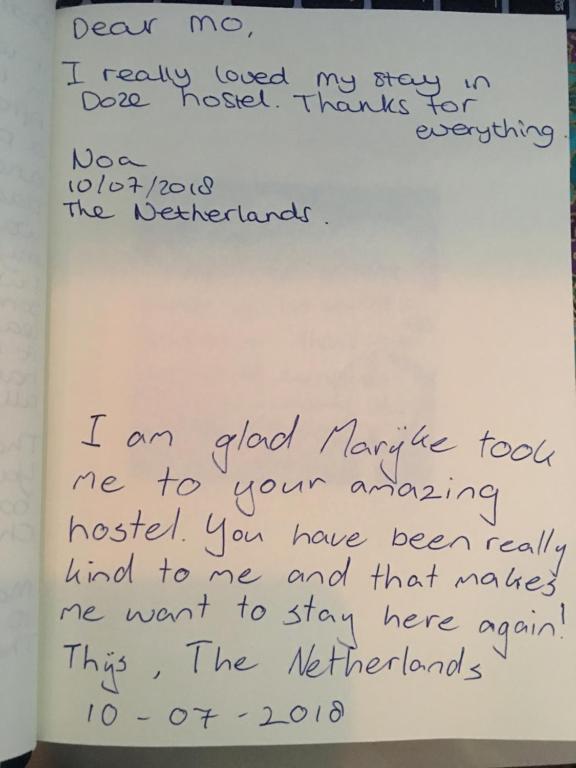 Dear Mo,
I really loved my stay in
Doze hostel. Thanks for
everything.
Noa
10/07/2018
The Netherlands.
I am glad Marijke took
me to your amazing
hostel. You have been really
kind to me and that makes
me want to stay here again!
Thijs, The Netherlands
10-07-2018